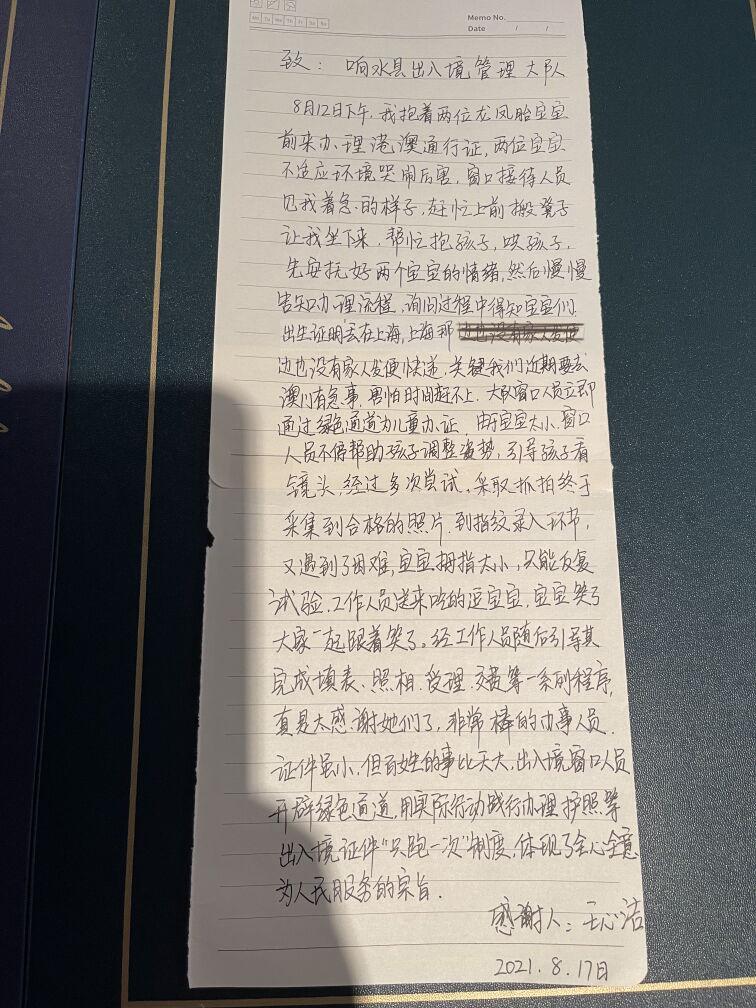 Mo Tu We Th Fr Sa Su
Memo No.
Date / /
致：响水县出入境管理大队
8月12日下午，我抱着两位龙凤胎宝宝
前来办理港澳通行证，两位宝宝
不适应环境哭闹厉害，窗口接待人员
见我着急的样子，赶忙上前搬凳子
让我坐下来，帮忙抱孩子，哄孩子，
先安抚好两个宝宝的情绪，然后慢慢
告知办理流程，询问过程中得知宝宝们
出生证明丢在上海，上海那
边也没有家人发便快递，关键我们近期要去
澳门有急事，害怕时间赶不上，大队窗口人员立即
通过绿色通道为儿童办证，由于宝宝太小，窗口
人员不停帮助孩子调整姿势，引导孩子看
镜头，经过多次尝试，采取抓拍终于
采集到合格的照片，到指纹录入环节，
又遇到了困难，宝宝拇指太小，只能反复
试验，工作人员送来吃的逗宝宝，宝宝笑了
大家一起跟着笑了。经工作人员随后引导其
完成填表、照相、受理、交费等一系列程序，
真是太感谢她们了，非常棒的办事人员．
证件虽小，但百姓的事比天大，出入境窗口人员
开辟绿色通道，用实际行动践行办理护照等
出入境证件“只跑一次”制度，体现了全心全意
为人民服务的宗旨．
感谢人：王心洁
2021.8.17日